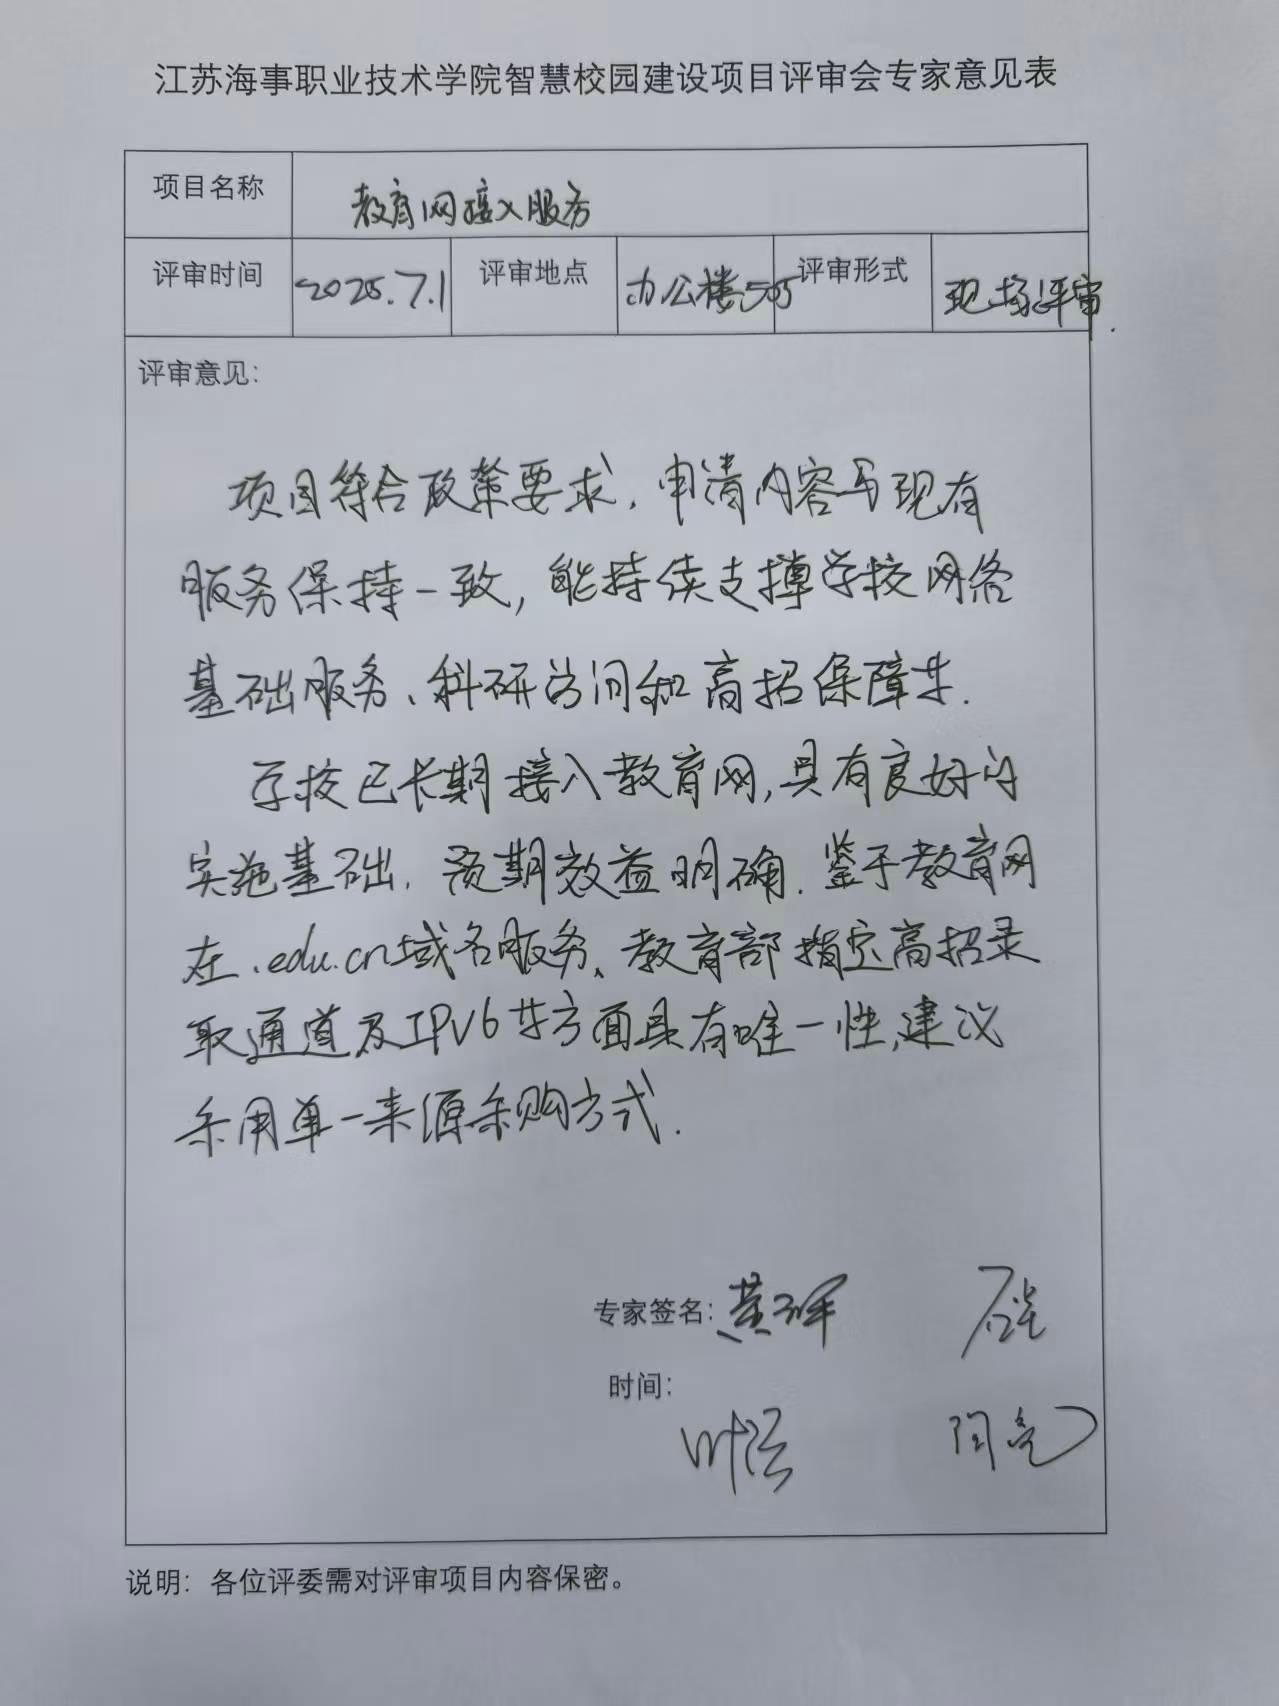 江苏海事职业技术学院智慧校园建设项目评审会专家意见表
项目名称 教育网接入服务
评审时间 2025.7.1 评审地点 办公楼505 评审形式 现场评审.
评审意见:
项目符合政策要求,申请内容与现有
服务保持一致,能持续支撑学校网络
基础服务、科研访问和高招保障等.
学校已长期接入教育网,具有良好的
实施基础,预期效益明确.鉴于教育网
在.edu.cn域名服务、教育部指定高招录
取通道及IPV6等方面具有唯一性,建议
采用单一来源采购方式.
专家签名:
时间:
说明:各位评委需对评审项目内容保密。